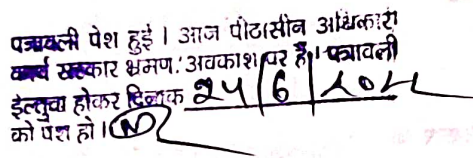 पत्रावली पेश हुई । आज पीठासीन अधिकारी
कार्य सरकार भ्रमण/अवकाश पर है। पत्रावली
ईल्तुवा होकर दिनांक 24/6/
को पेश हो।